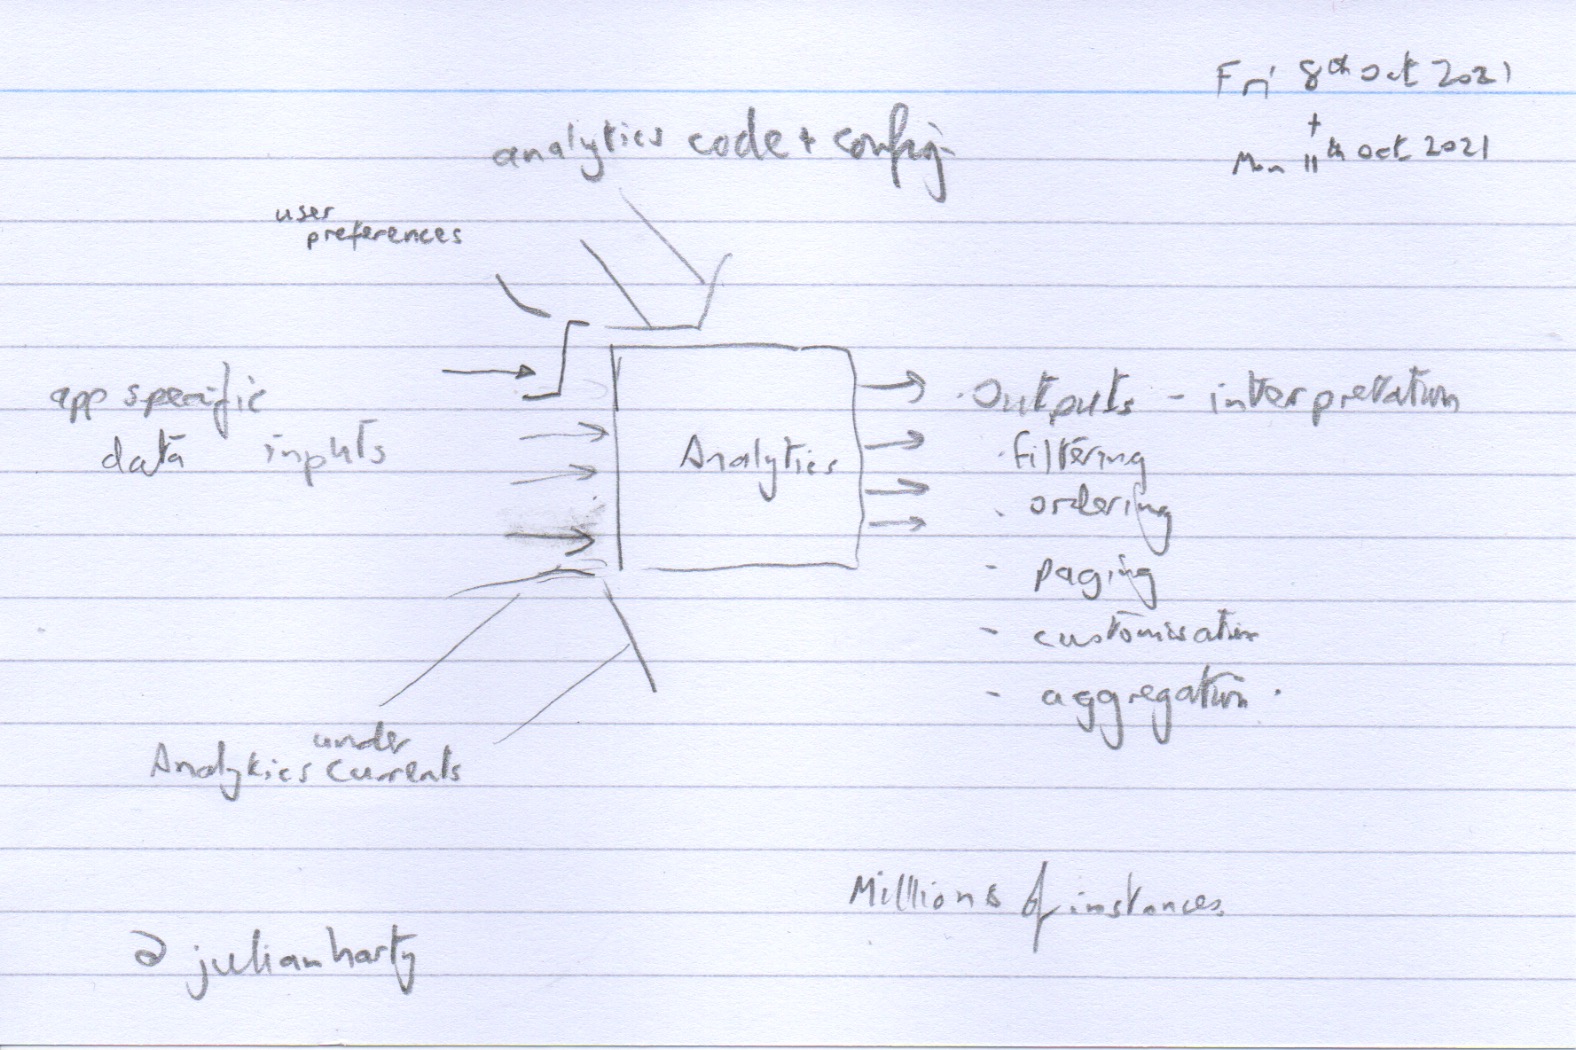 Fri 8th Oct 2021
+
Mon 11th Oct 2021
analytics code + config
user
preferences
app specific
data inputs
Analytics
Outputs - interpretation
· filtering
· ordering
- paging
- customisation
- aggregation.
under
Analytics currents
Millions of instances.
@julianharty